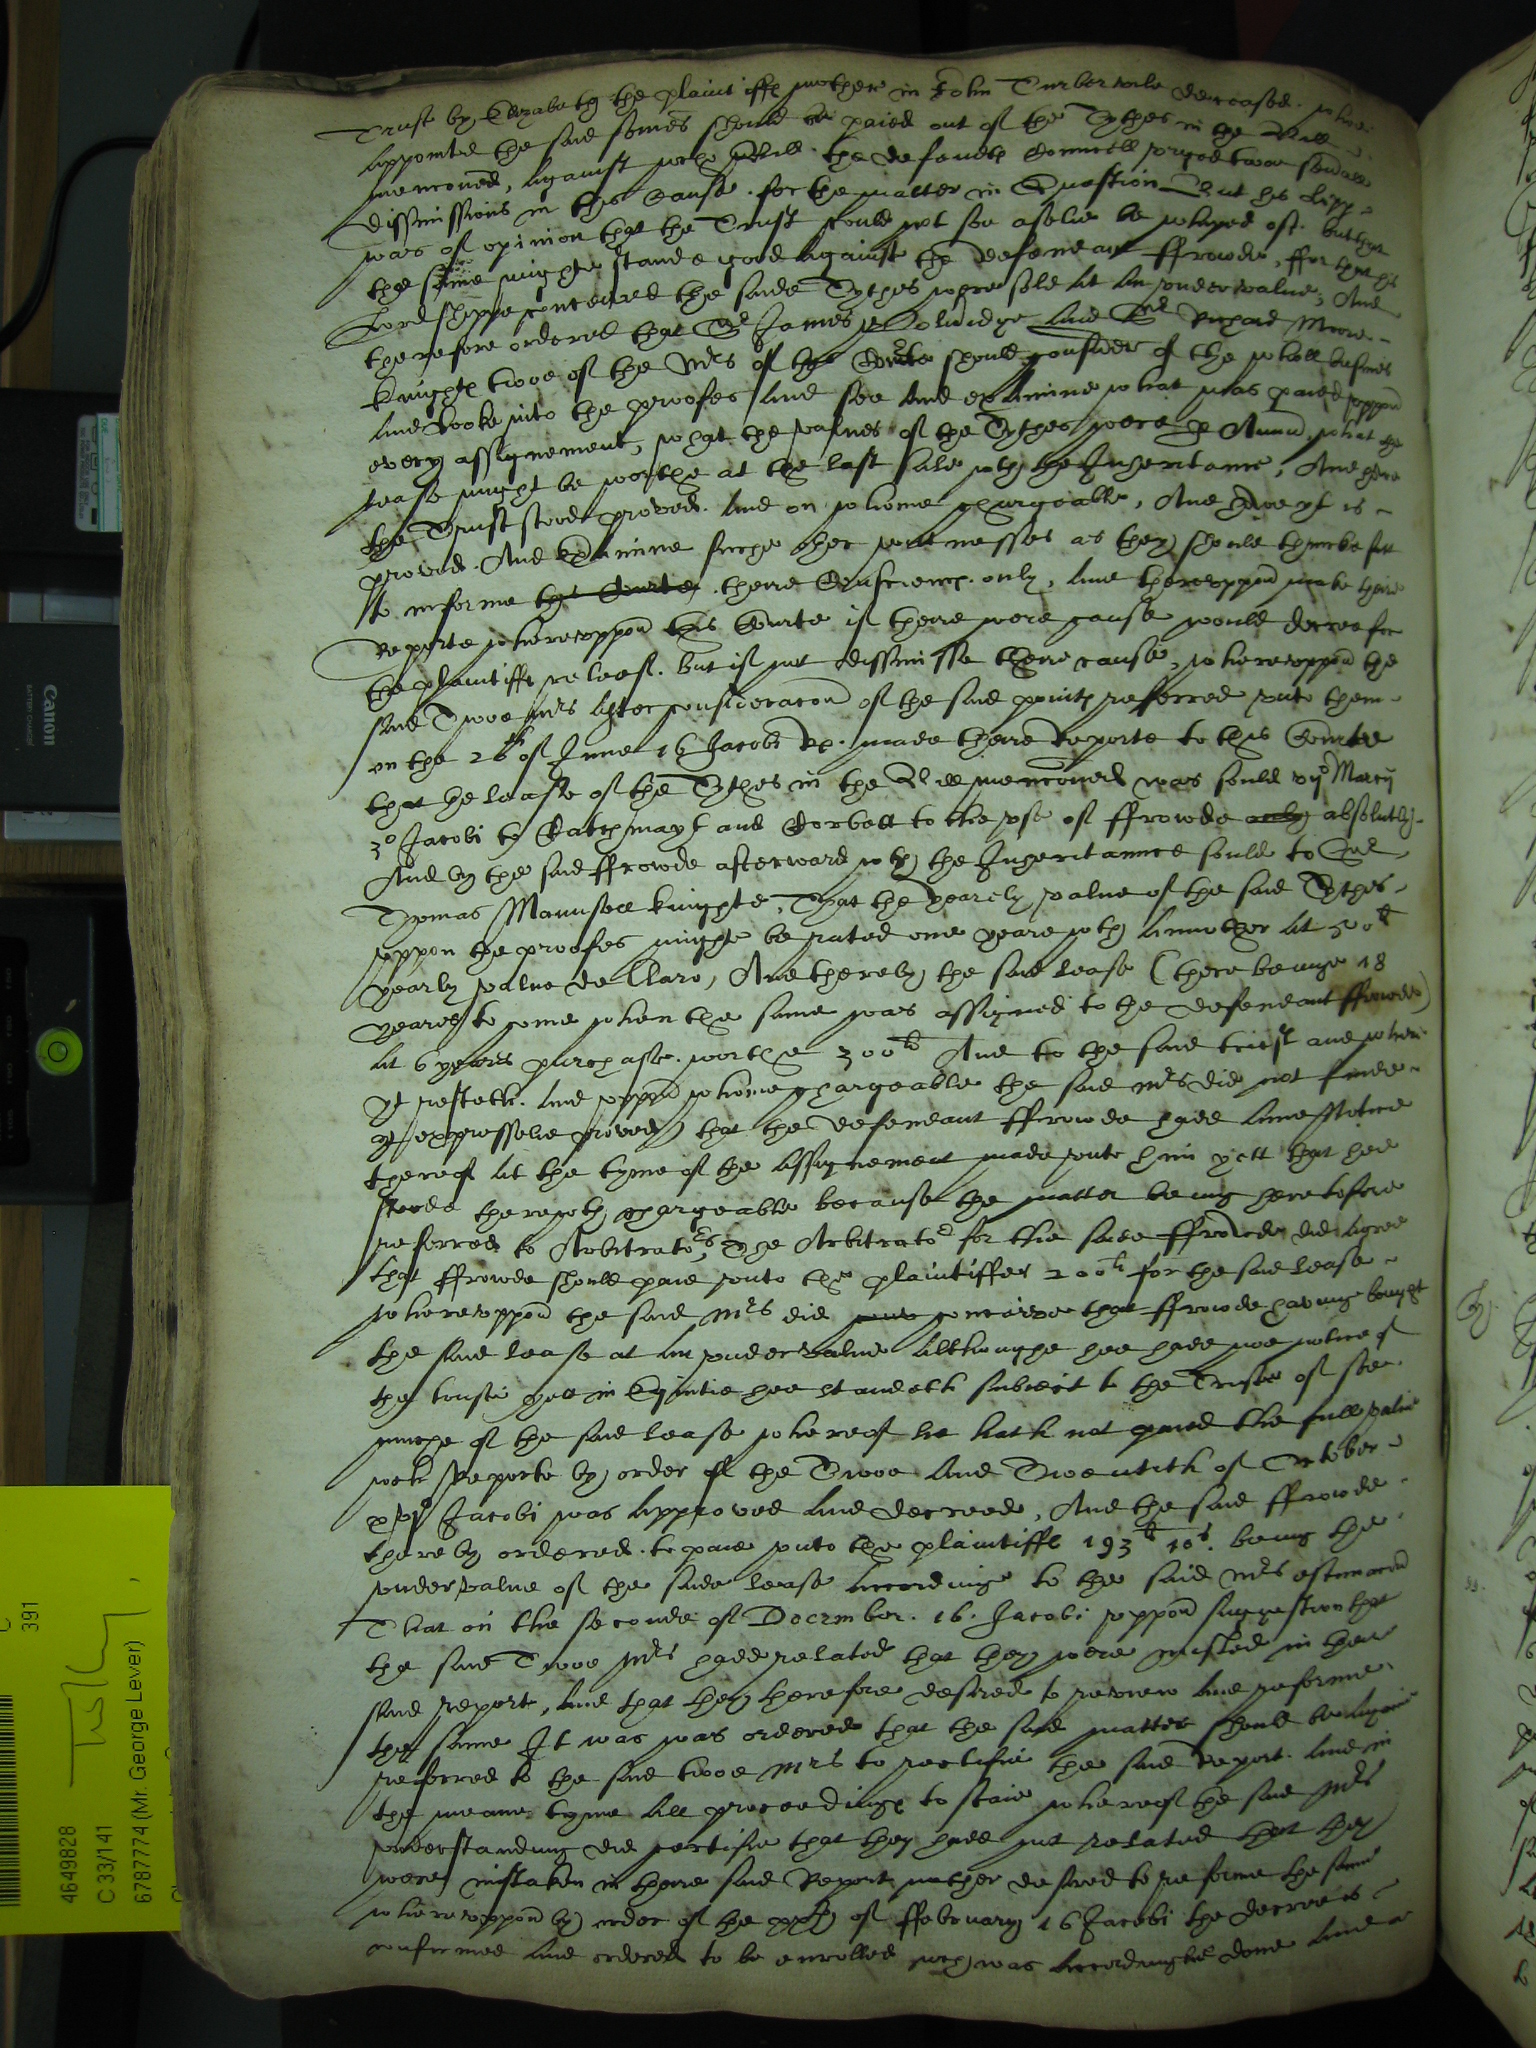 Trust by Elizabeth the plaintiffs mother in John Turbervile deceased. who
appointed the said somes should be paied out of the Tythes in the Bill
menconed, Against wch Bill the defendts Councell vrged twoe seuall
dismissions in this Cause for the matter in Question But his Lopp
was of opinion that the Trust could not soe aslie be whiped of. but that
the same might stande good against the defendant ffrowde, ffor that his
Lordshippe conceived the saide Tythes were sold at an vndervalue, And
therefore ordered that Sr James Woolridge and Sr Richard Moore
knights twoe of the Mrs of the Courte should consider of the whole busines
and looke into the proofes and see and examine what was paied vppon
every assignement, what the values of the Tythes were p Annu, what the
lease might be worthe at the last sale wth the Inheritance, And howe
the Trust stood proved. and on whome chargeable, And howe yt is
proved. And Examine such other witnesses as they should thincke fitt
to informe the Courte theire Consciences only, and therevppon make their
Reporte wherevppon this Courte if there were cause would decree for
the plaintiffs releef. but if not dissmisse theire cause, wherevppon the
said Twoe Mrs after consideracon of the said points refferred vnto them
on the 26th of June 16 Jacobi Rs. made theire Reporte to this Courte
that the lease of the Tythes in the Bill menconed was sould vijo Marcij
3o Jacobi by Catchmayd and Corbett to the vse of ffrowde only absolutly
And by the said ffrowde afterward wth the Inheritannce sould to Sr
Thomas Maunsell knighte, That the yearely value of the said Tythes
vppon the proofes might be rated one yeare wth annother at 50li
yearly value de Claro, And thereby the said lease (there beinge 18
yeares to come when the same was assigned to the defendant ffrowde)
at 6 yeares purchase worthe 300li And to the said trust and where
yt resteth. and vppon whome chargeable the said Mrs did not finde
yt expresselie proved that the defendant ffrowde hadd anie Notice
thereof at the tyme of the Assignement made vnto him yett that hee
stoode therewth chargeable because the matter being heretofore
referred to Arbitrators, The Arbitrator for the said ffrowde did agree
that ffrowde should paie vnto the plaintiffes 200li for the said lease
wherevppon the said Mrs did conceive that ffrowde having bought
the said lease at an vndervalue Allthoughe hee hadd noe notice of
the truste yett in Equitie hee standeth subiect to the Truste of soe
muche of the said lease whereof he hath not paied the full value
wch Reporte by order of the Twoe and Twentith of October
xvjo Jacobi was approved and decreed, And the said ffrowde
thereby ordered to paie vnto the plaintiffs 193li 10s. being the
vndervalue of the saide lease accordinge to the said Mrs estimacon
That on the seconde of December. 16. Jacobi vppon suggestion that
the said Twoe Mrs hadd related that they were misled in their
said report, and that they therefore desired to review and reforme
the same It was was ordered that the said matter should be againe
referred to the said twoe Mrs to rectifie the said Report. and in
the meane tyme all proceedings to staie whereof the said Mrs
vnderstanding did certifie that they hadd not related that they
were mistaken in theire said Report nother desired to reforme the same
wherevppon by order of the of ffebruary 16 Jacobi the decree is
confirmed and ordered to be enrolled wch was accordinglie done and
Canon
BATTERY CHARGER
391
4649828
C 33/141
6787774 (Mr. George Lever)